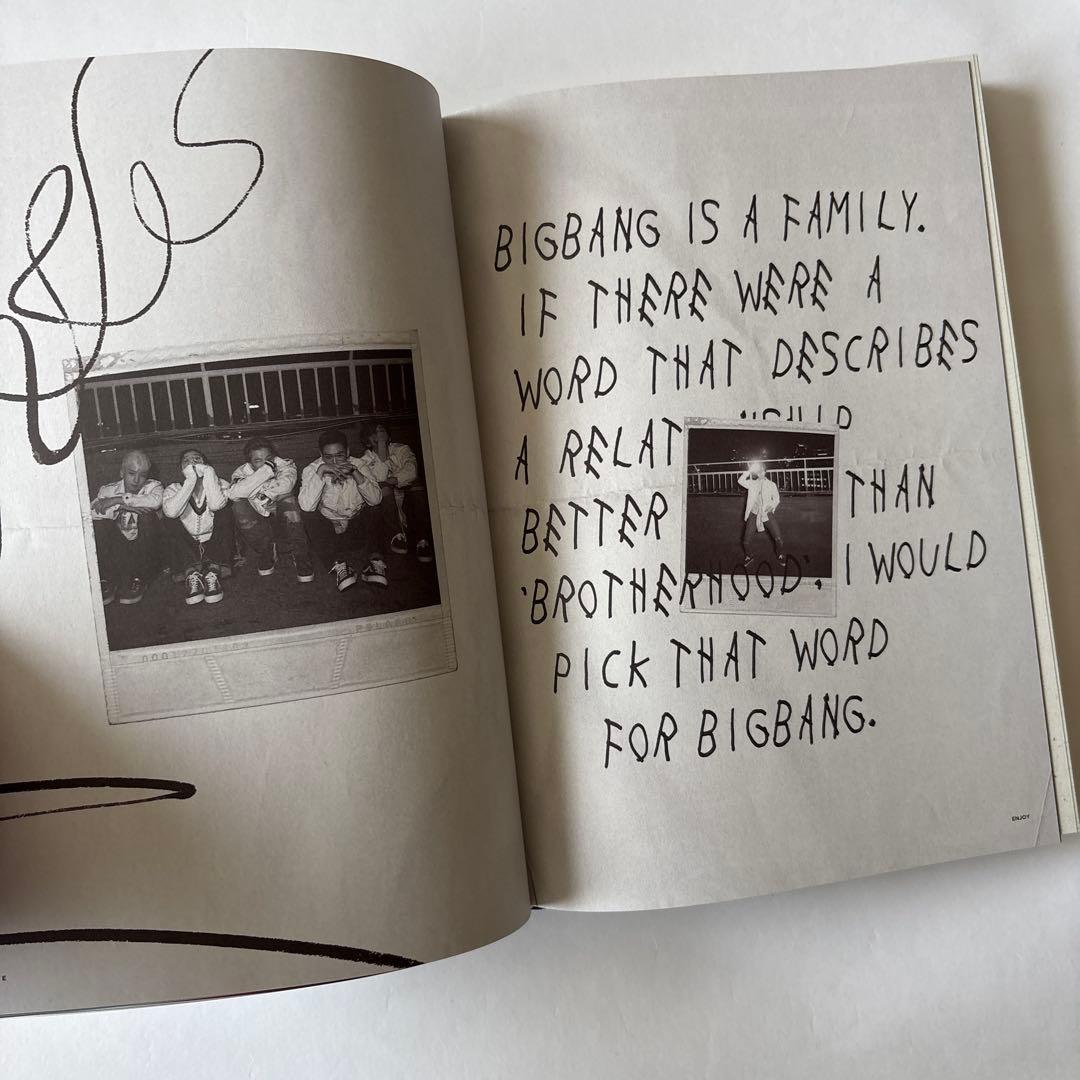 BIGBANG IS A FAMILY.
IF THERE WERE A
WORD THAT DESCRIBES
A RELAT
BETTER THAN
'BROTHERHOOD', I WOULD
PICK THAT WORD
FOR BIGBANG.
ENJOY